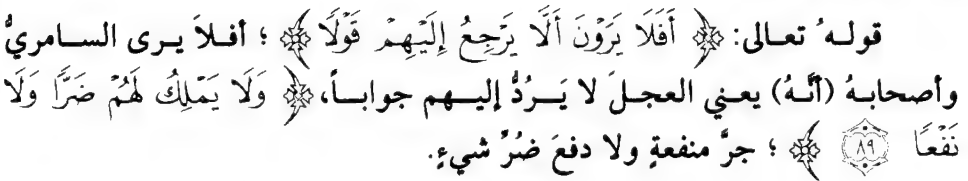 قولهُ تعالى: ﴿ أَفَلَا يَرَوْنَ أَلَّا يَرْجِعُ إِلَيْهِمْ قَوْلًا ﴾ ؛ أفلاَ يرى السامريُّ
وأصحابهُ (أنَّهُ) يعني العجلَ لا يَرُدُّ إليهم جواباً، ﴿ وَلَا يَمْلِكُ لَهُمْ ضَرًّا وَلَا
نَفْعًا ٨٩ ﴾ ؛ جرَّ منفعةٍ ولا دفعَ ضُرِّ شيءٍ.